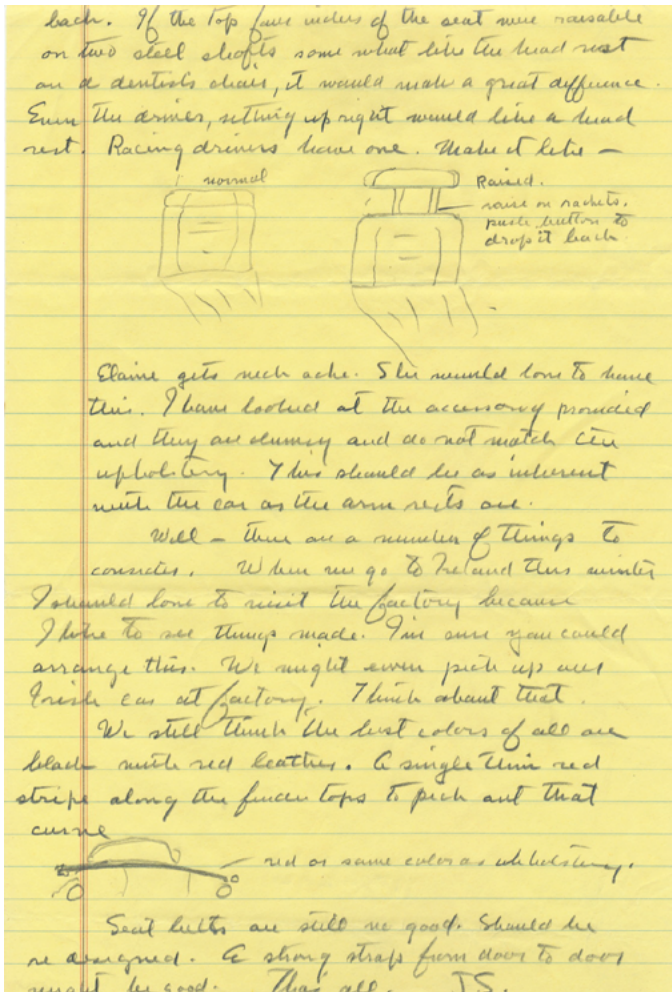 back. If the top four inches of the seat were raisable
on two steel shafts some what like the head rest
on a dentists chair, it would make a great difference.
Even the driver, sitting up right would like a head
rest. Racing drivers have one. Make it like —
normal
Raised.
raise on rachets.
push button to
drop it back.
Elaine gets neck ache. She would love to have
this. I have looked at the accessory provided
and they are clumsy and do not match the
upholstery. This should be as inherent
with the car as the arm rests are.
Well — there are a number of things to
consider. When we go to Ireland this winter
I should love to visit the factory because
I like to see things made. I'm sure you could
arrange this. We might even pick up our
Irish car at factory. Think about that.
We still think the best colors of all are
black with red leather. A single thin red
stripe along the fender tops to pick out that
curve
red or same color as upholstery.
Seat belts are still no good. Should be
re designed. A strong strap from door to door
might be good. Thas all. J.S.